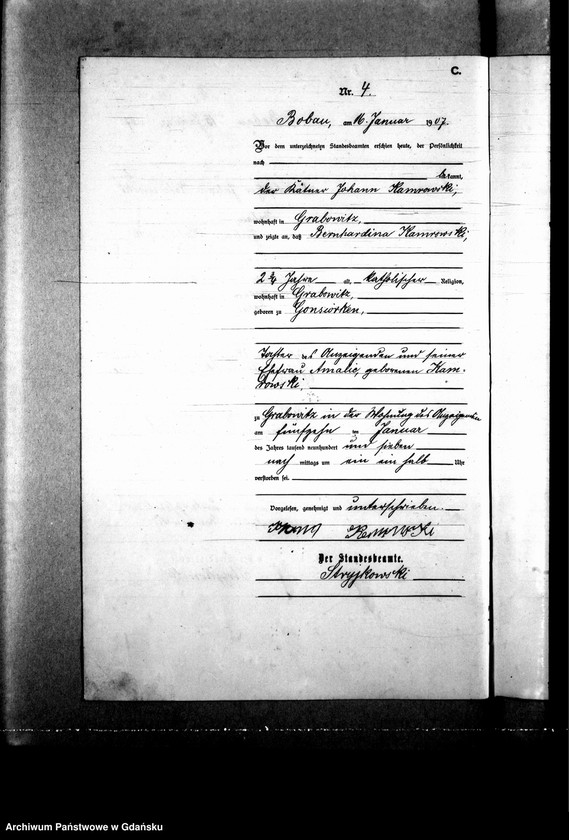 C.
Nr. 4.
Bobau, am 16. Januar 1907.
Vor dem unterzeichneten Standesbeamten erschien heute, der Persönlichkeit
nach
bekannt,
der Kätner Johann Kamrowski,
wohnhaft in Grabowitz,
und zeigte an, daß Bernhardina Kamrowski,
2 3/4 Jahre alt, katholischer Religion,
wohnhaft in Grabowitz,
geboren zu Gonsiorken,
Tochter des Anzeigenden und seiner
Ehefrau Amalie, geborenen Kam-
rowski,
zu Grabowitz in der Wohnung des Anzeigenden
am fünfzehn ten Januar
des Jahres tausend neunhundert und sieben
nach mittags um ein ein halb Uhr
verstorben sei.
Vorgelesen, genehmigt und unterschrieben.
Der Standesbeamte.
Stryjkowski
Archiwum Państwowe w Gdańsku